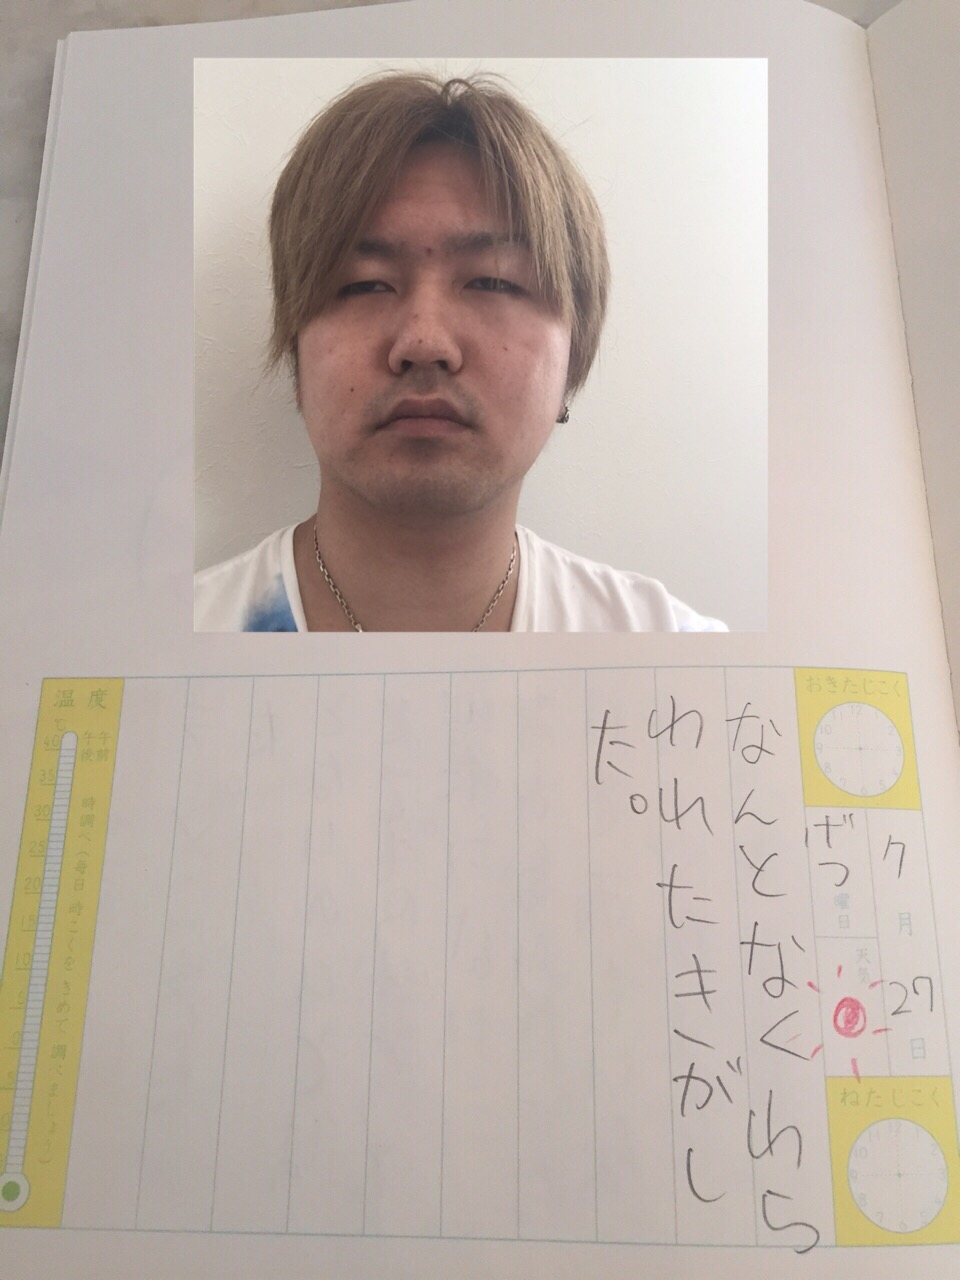 おきたじこく
7月27日
げつ曜日
天気
ねたじこく
なんとなくわら
われたきがし
た。
温度
℃
午前
午後
時調べ(毎日時こくをきめて調べましょう)
40
35
30
25
20
15
10
5
0